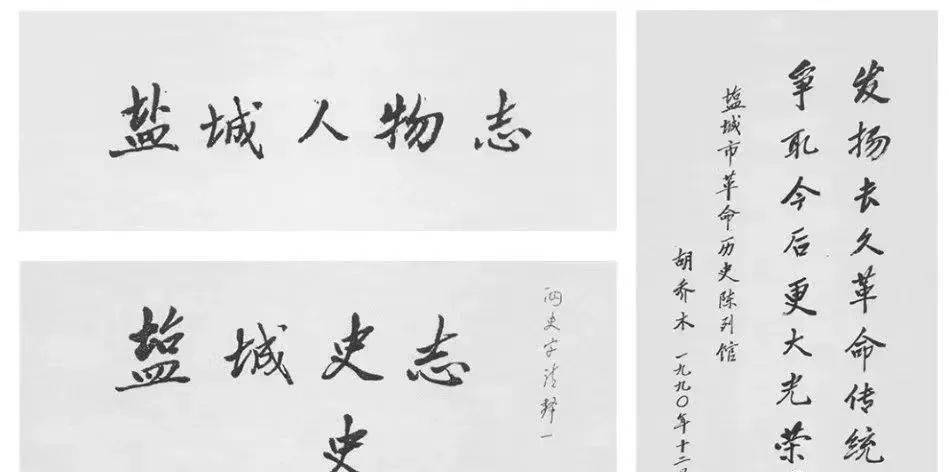 盐城人物志
塩城史志
史
两史字请择一
发扬长久革命传统
争取今后更大光荣
塩城市革命历史陈列馆
胡乔木 一九九〇年十二